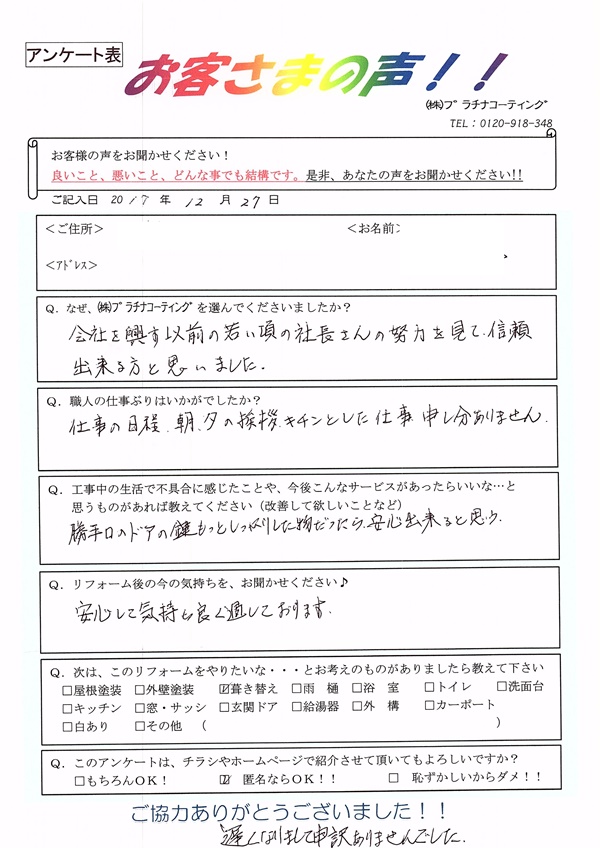 アンケート表
お客さまの声！！
㈱プラチナコーティング
TEL：0120-918-348
お客様の声をお聞かせください！
良いこと、悪いこと、どんな事でも結構です。是非、あなたの声をお聞かせください!!
ご記入日 2017 年 12 月 27 日
＜ご住所＞ ＜お名前＞
＜ｱﾄﾞﾚｽ＞
Q．なぜ、㈱プラチナコーティングを選んでくださいましたか？
会社を興す以前の若い頃の社長さんの努力を見て、信頼
出来る方と思いました。
Q．職人の仕事ぶりはいかがでしたか？
仕事の日程、朝、夕の挨拶、キチンとした仕事、申し分ありません。
Q．工事中の生活で不具合に感じたことや、今後こんなサービスがあったらいいな…と
思うものがあれば教えてください（改善して欲しいことなど）
勝手口のドアの鍵もっとしっかりした物だったら、安心出来ると思う。
Q．リフォーム後の今の気持ちを、お聞かせください♪
安心して気持も良く過しております。
Q．次は、このリフォームをやりたいな・・・とお考えのものがありましたら教えて下さい
□屋根塗装 □外壁塗装 ☑葺き替え □雨 樋 □浴 室 □トイレ □洗面台
□キッチン □窓・サッシ □玄関ドア □給湯器 □外 構 □カーポート
□白あり □その他 （ ）
Q．このアンケートは、チラシやホームページで紹介させて頂いてもよろしいですか？
□もちろんOK！ ☑ 匿名ならOK！！ □ 恥ずかしいからダメ！！
ご協力ありがとうございました！！
遅くなりまして申訳ありませんでした。